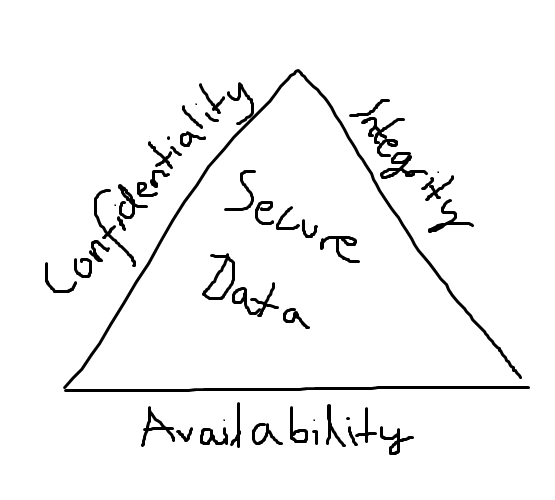 Confidentiality
Integrity
Secure
Data
Availability